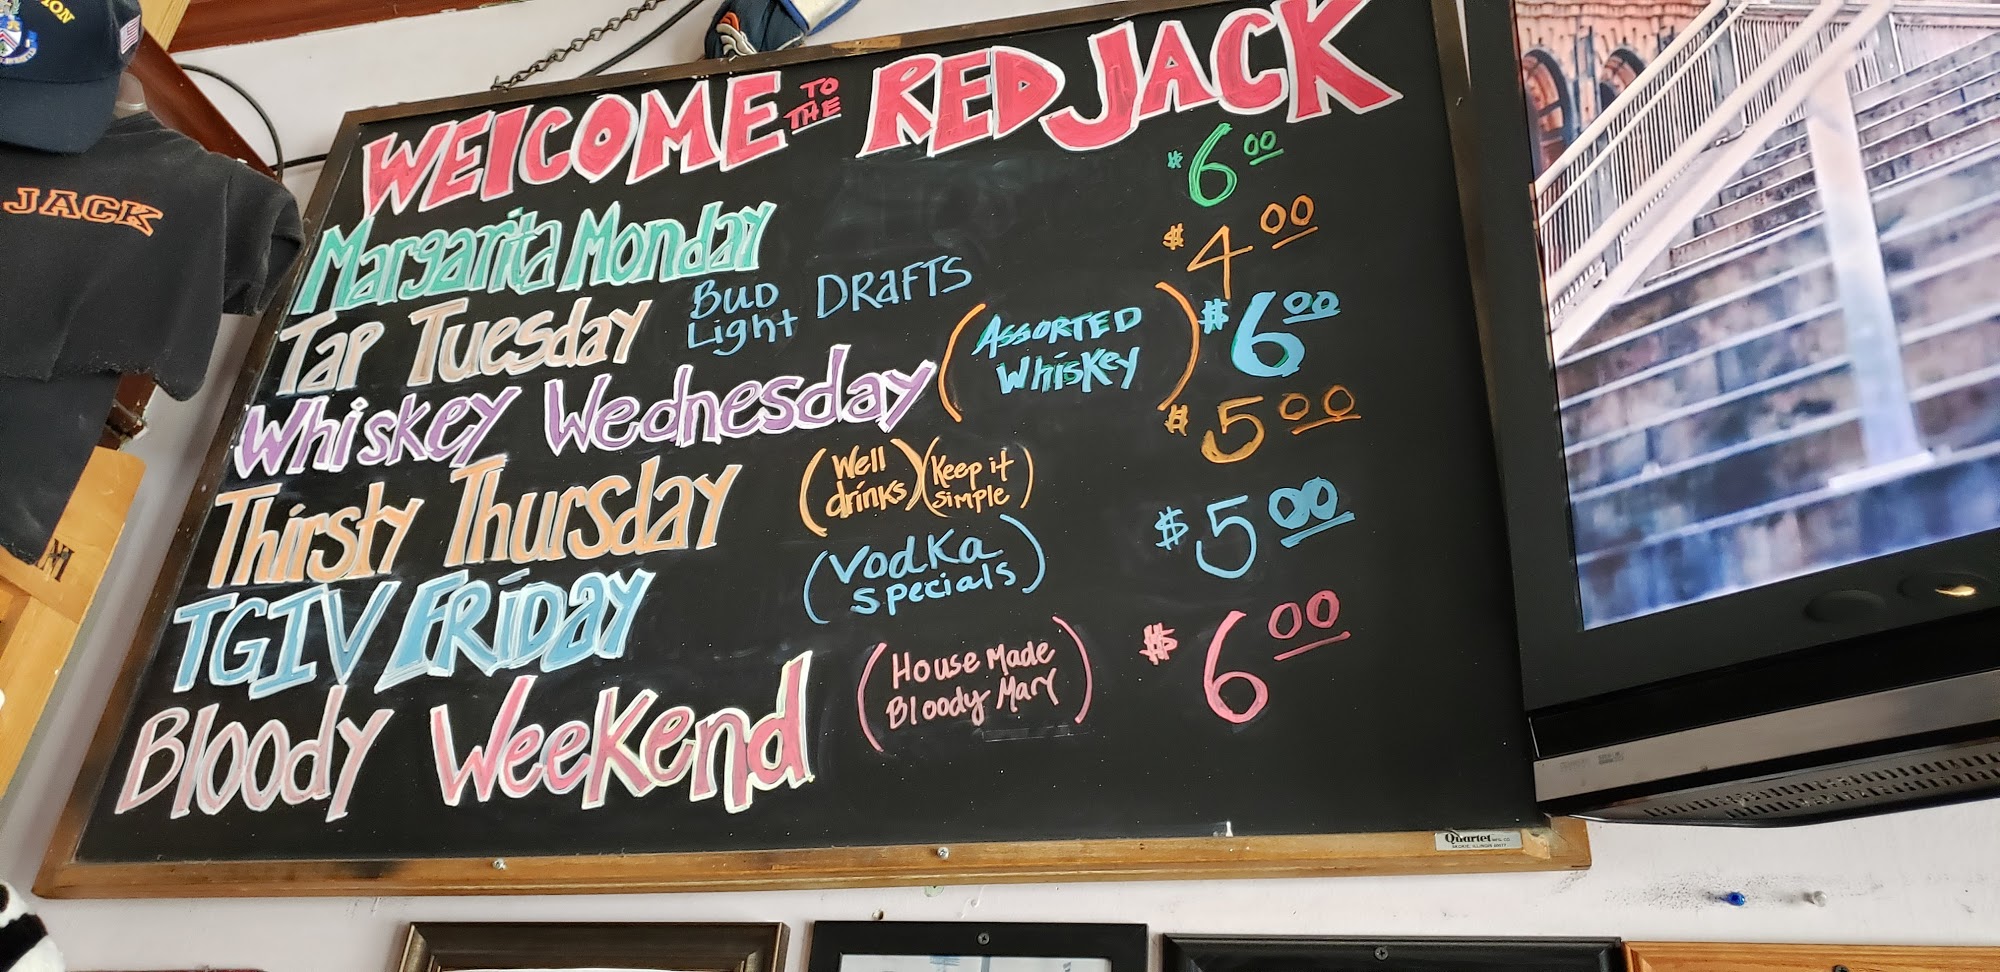 WELCOME TO THE RED JACK
Margarita Monday $6.00
Tap Tuesday Bud Light DRAFTS $4.00
Whiskey Wednesday (ASSORTED Whiskey) $6.00
Thirsty Thursday (Well drinks)(Keep it simple) $5.00
TGIV FRiDay (Vodka specials) $5.00
Bloody Weekend (House Made Bloody Mary) $6.00
JACK
Quartet